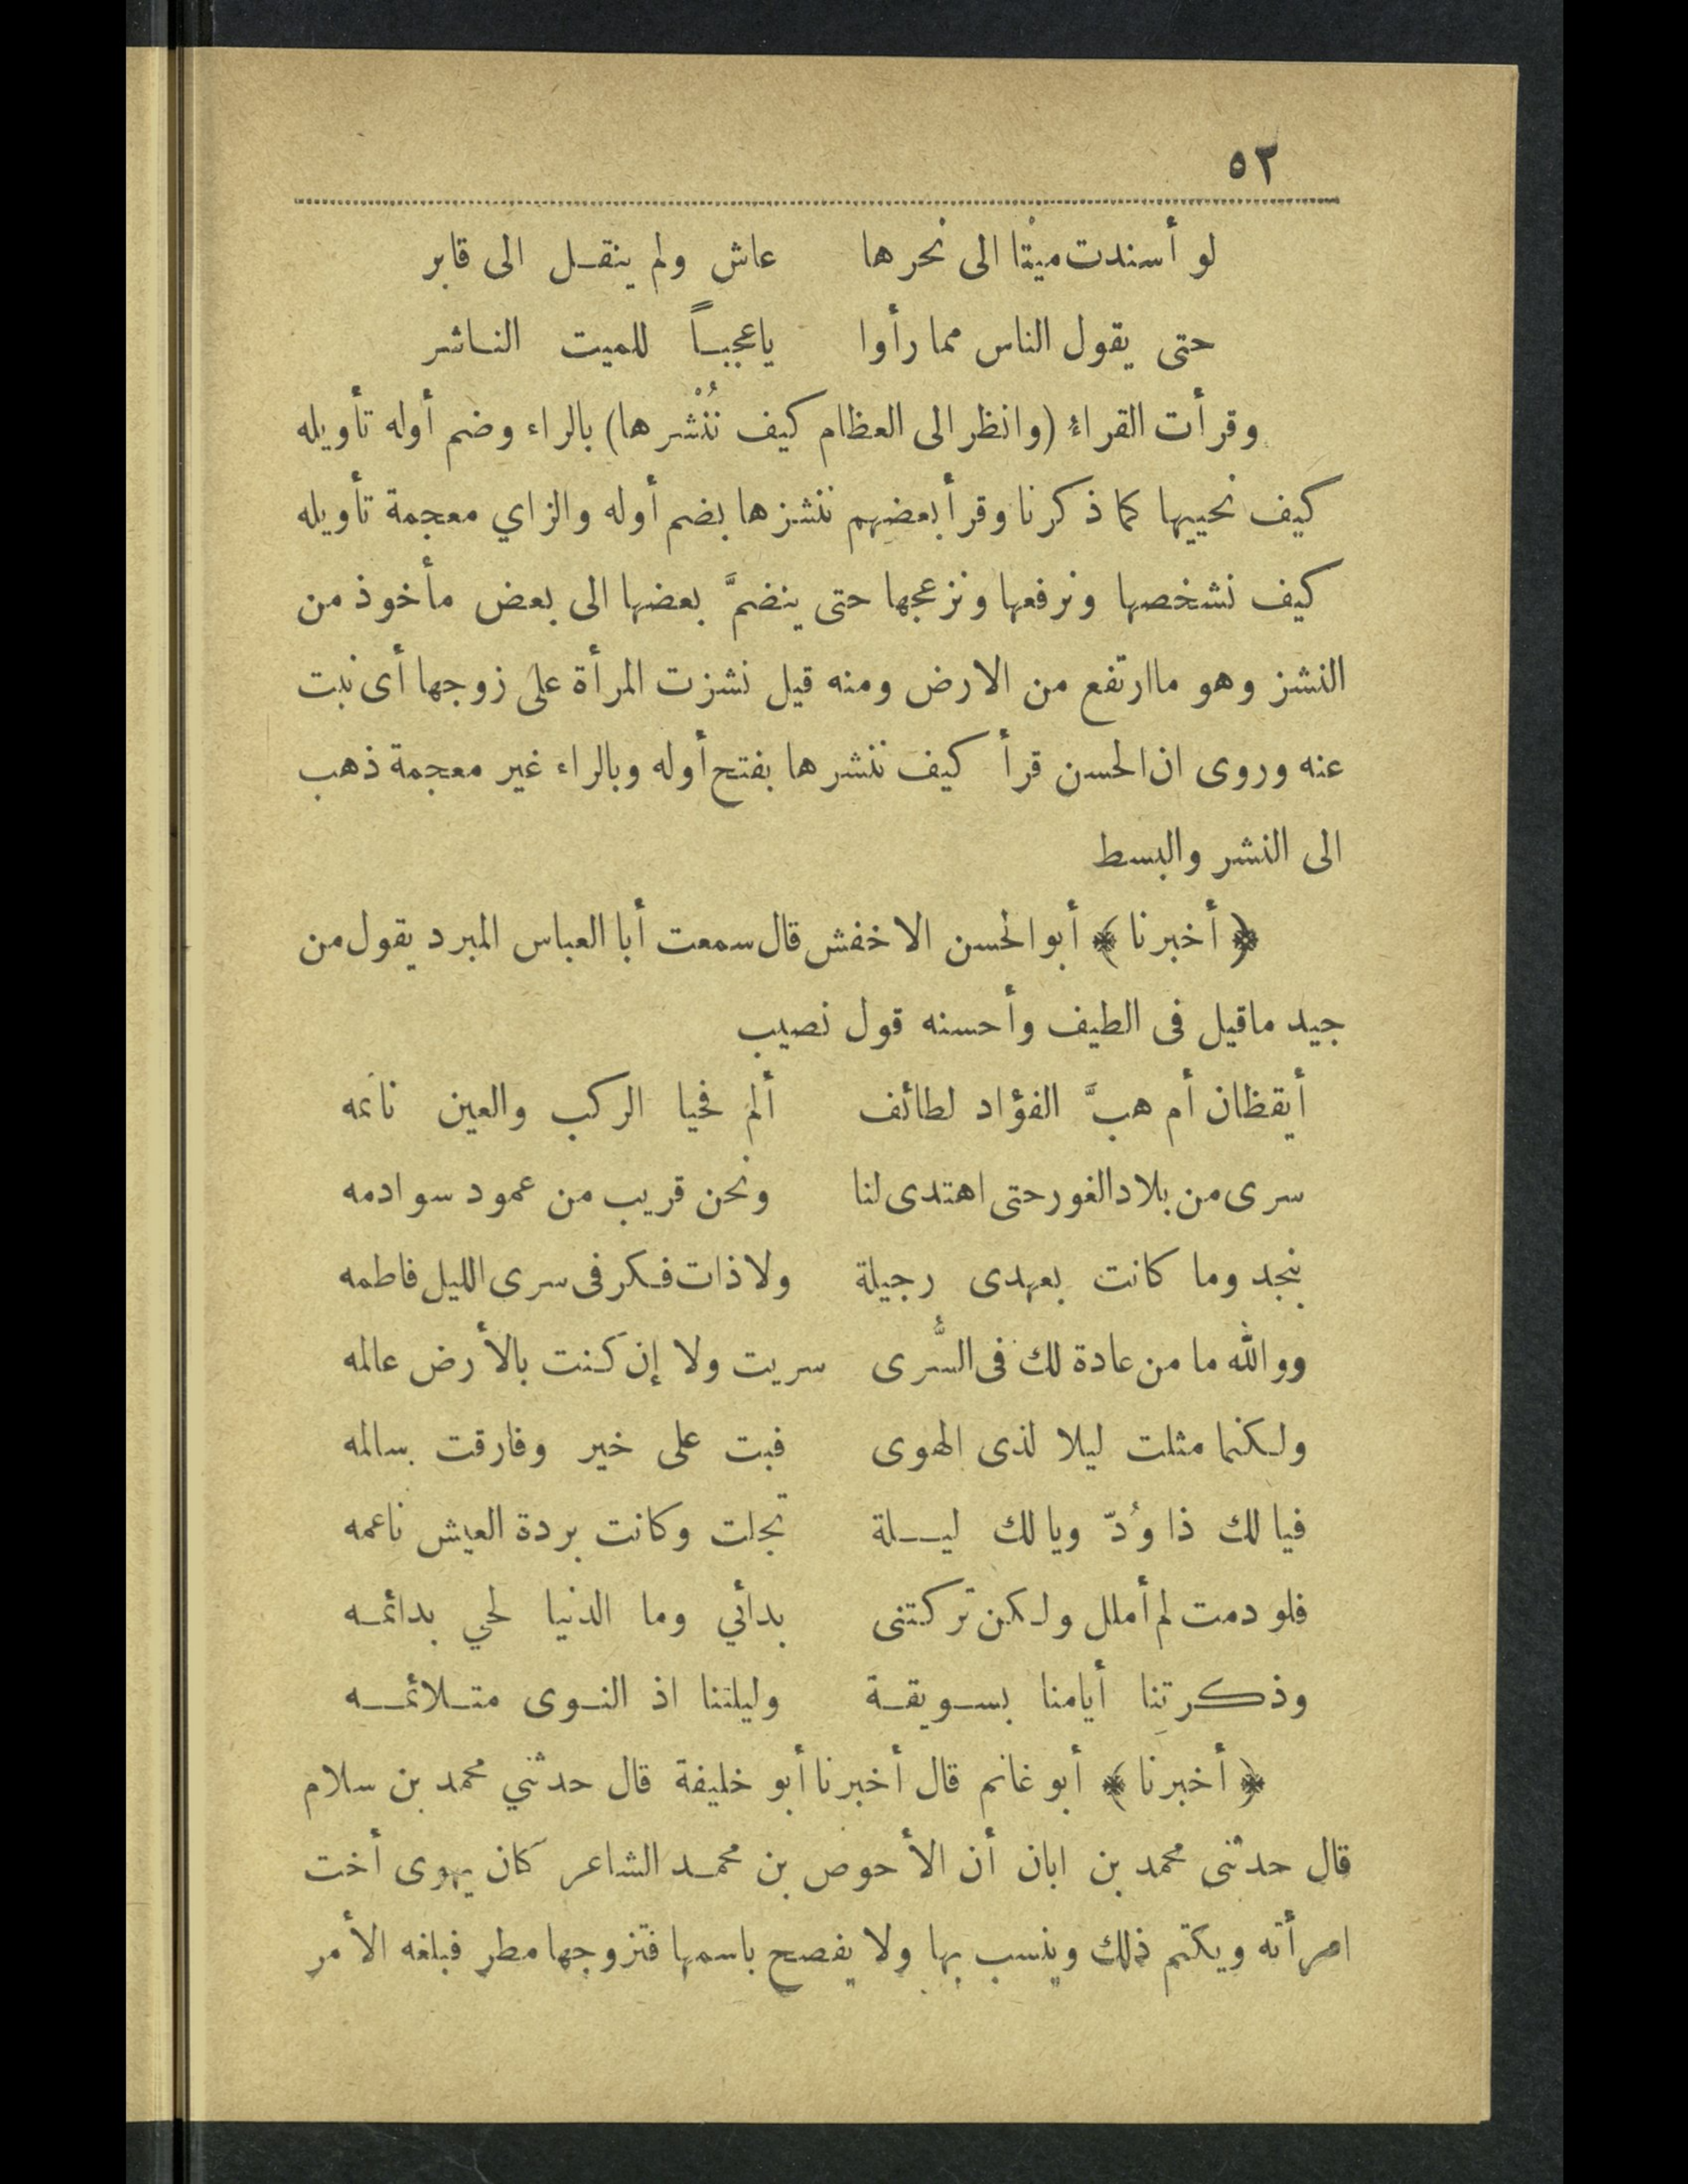 ٥٢
لو أسندت ميْتا الى نحرها عاش ولم ينقل الى قابر
حتى يقول الناس مما رأوا ياعجباً للميت الناشر
وقرأت القراء (وانظر الى العظام كيف نُنْشرها) بالراء وضم أوله تأويله
كيف نحييها كما ذكرنا وقرأ بعضهم ننشزها بضم أوله والزاي معجمة تأويله
كيف نشخصها ونرفعها ونزعجها حتى ينضمَّ بعضها الى بعض مأخوذ من
النشز وهو ماارتفع من الارض ومنه قيل نشزت المرأة على زوجها أى نبت
عنه وروى ان الحسن قرأ كيف ننشرها بفتح أوله وبالراء غير معجمة ذهب
الى النشر والبسط
﴿ أخبرنا ﴾ أبو الحسن الاخفش قال سمعت أبا العباس المبرد يقول من
جيد ماقيل فى الطيف وأحسنه قول نصيب
أيقظان أم هبَّ الفؤاد لطائف ألم فحيا الركب والعين نائمه
سرى من بلاد الغور حتى اهتدى لنا ونحن قريب من عمود سوادمه
بنجد وما كانت بعهدى رجيلة ولا ذات فكر فى سرى الليل فاطمه
ووالله ما من عادة لك فى السُّرى سريت ولا إن كنت بالأرض عالمه
ولكنما مثلت ليلا لذى الهوى فبت على خير وفارقت سالمه
فيا لك ذا وُدّ ويا لك ليلة تجلت وكانت بردة العيش ناعمه
فلو دمت لم أملل ولكن تركتنى بدأئي وما الدنيا لحي بدائمه
وذكرتِنا أيامنا بسويقة وليلتنا اذ النوى متلائمه
﴿ أخبرنا ﴾ أبو غانم قال أخبرنا أبو خليفة قال حدثني محمد بن سلام
قال حدثنى محمد بن ابان أن الأحوص بن محمد الشاعر كان يهوى أخت
امرأته ويكتم ذلك وينسب بها ولا يفصح باسمها فتزوجها مطر فبلغه الأمر